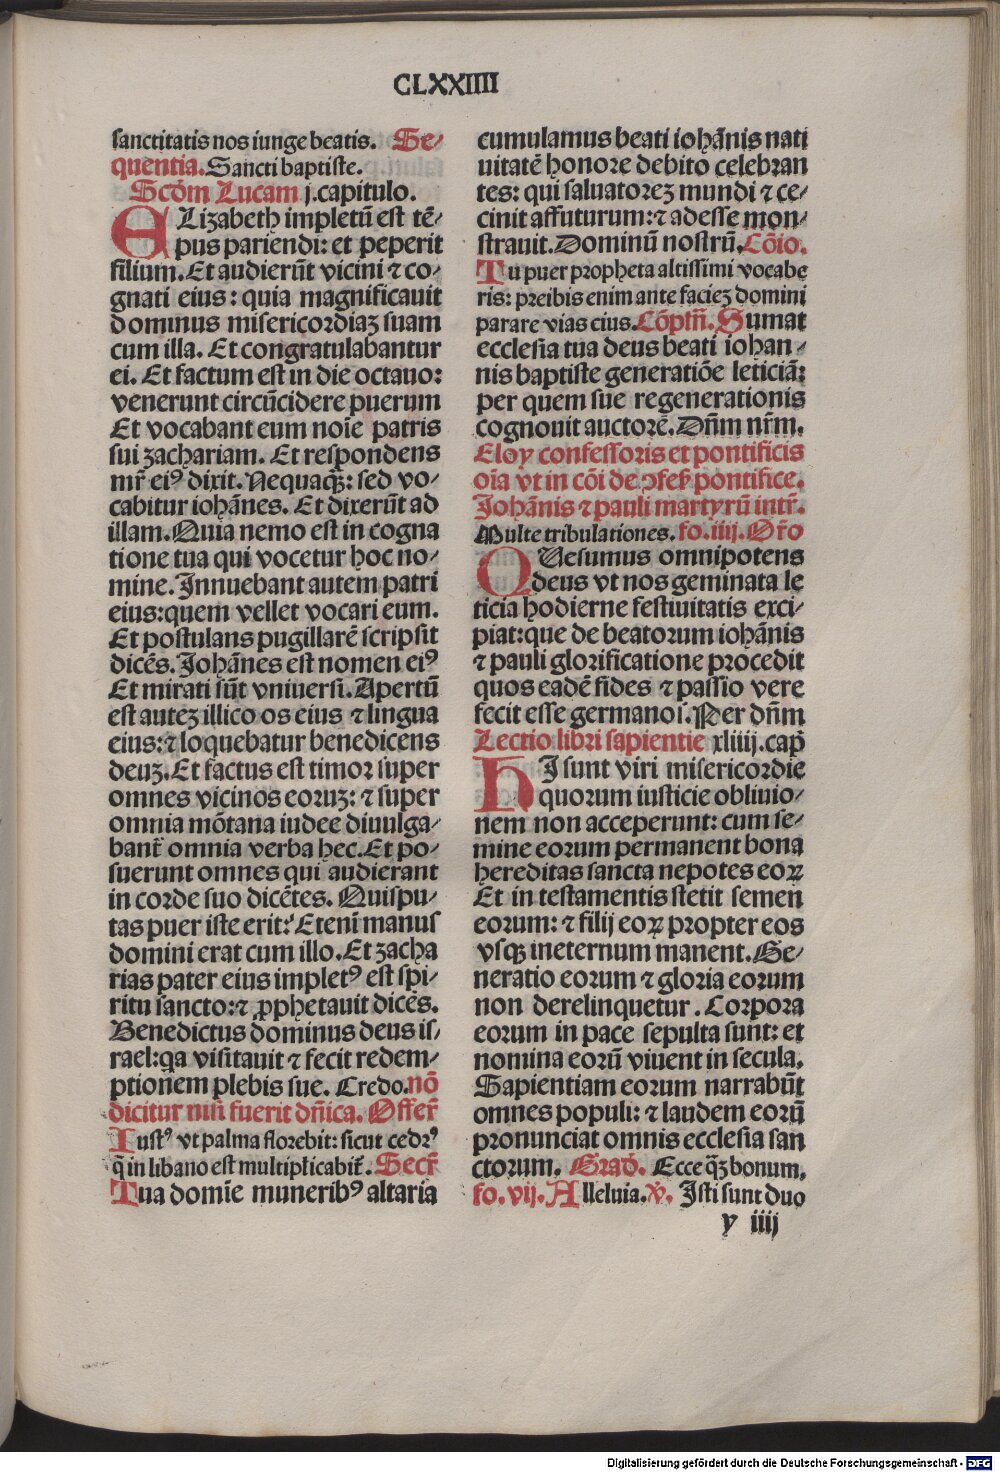 CLXXIIII
sanctitatis nos iunge beatis. Se⸗
quentia. Sancti baptiste.
Scd̄m Lucam j. capitulo.
ELizabeth impletū est tē⸗
pus pariendi: et peperit
filium. Et audierūt vicini ⁊ co⸗
gnati eius: quia magnificauit
dominus misericordiaꝫ suam
cum illa. Et congratulabantur
ei. Et factum est in die octauo:
venerunt circūcidere puerum
Et vocabant eum noīe patris
sui zachariam. Et respondens
mr̄ eiꝰ dixit. Nequaqꝫ̄: sed vo⸗
cabitur iohānes. Et dixerūt ad
illam. Quia nemo est in cogna
tione tua qui vocetur hoc no⸗
mine. Innuebant autem patri
eius: quem vellet vocari eum.
Et postulans pugillarē scripsit
dicēs. Johānes est nomen eiꝰ
Et mirati sūt vniuersi. Apertū
est auteꝫ illico os eius ⁊ lingua
eius: ⁊ loquebatur benedicens
deuꝫ. Et factus est timor super
omnes vicinos eoruꝫ: ⁊ super
omnia mōtana iudee diuulga⸗
bant̄ omnia verba hec. Et po⸗
suerunt omnes qui audierant
in corde suo dicētes. Quispu⸗
tas puer iste erit: Etenī manus
domini erat cum illo. Et zacha
rias pater eius impletꝰ est spi⸗
ritu sancto: ⁊ ꝓphetauit dicēs.
Benedictus dominus deus is⸗
rael: qa visitauit ⁊ fecit redem⸗
ptionem plebis sue. Credo. nō
dicitur nisi fuerit dn̄ica. Offer̄
Iustꝰ vt palma florebit: sicut cedrꝰ
q̄ in libano est multiplicabit̄. Secr̄
Tua domīe muneribꝰ altaria
cumulamus beati iohānis nati
uitatē honore debito celebran
tes: qui saluatoreꝫ mundi ⁊ ce⸗
cinit affuturum: ⁊ adesse mon⸗
strauit. Dominū nostrū. Cōio.
Tu puer propheta altissimi vocabe
ris: preibis enim ante facieꝫ domini
parare vias eius. Cōpln̄. Sumat
ecclesia tua deus beati iohan⸗
nis baptiste generatiōe leticiā:
per quem sue regenerationis
cognouit auctorē. Dn̄m nr̄m.
Eloy confessoris et pontificis
oīa vt in cōi de ꝯfes̄ pontifice.
Johānis ⁊ pauli martyrū intr̄.
Multe tribulationes. fo. iiij. Or̄o
QUesumus omnipotens
deus vt nos geminata le
ticia hodierne festiuitatis exci⸗
piat: que de beatorum iohānis
⁊ pauli glorificatione procedit
quos eadē fides ⁊ passio vere
fecit esse germanoś. Per dn̄m
Lectio libri sapientie xliiij. cap̄
HI sunt viri misericordie
quorum iusticie obliuio⸗
nem non acceperunt: cum se⸗
mine eorum permanent bona
hereditas sancta nepotes eoꝝ
Et in testamentis stetit semen
eorum: ⁊ filij eoꝝ propter eos
vsqꝫ ineternum manent. Ge⸗
neratio eorum ⁊ gloria eorum
non derelinquetur. Corpora
eorum in pace sepulta sunt: et
nomina eorū viuent in secula.
Sapientiam eorum narrabūt
omnes populi: ⁊ laudem eorū
pronunciat omnis ecclesia san
ctorum. Grad̄. Ecce qꝫ̄ bonum.
fo. vij. Alleluia. V̄. Isti sunt duo
y iiij
Digitalisierung gefördert durch die Deutsche Forschungsgemeinschaft - DFG